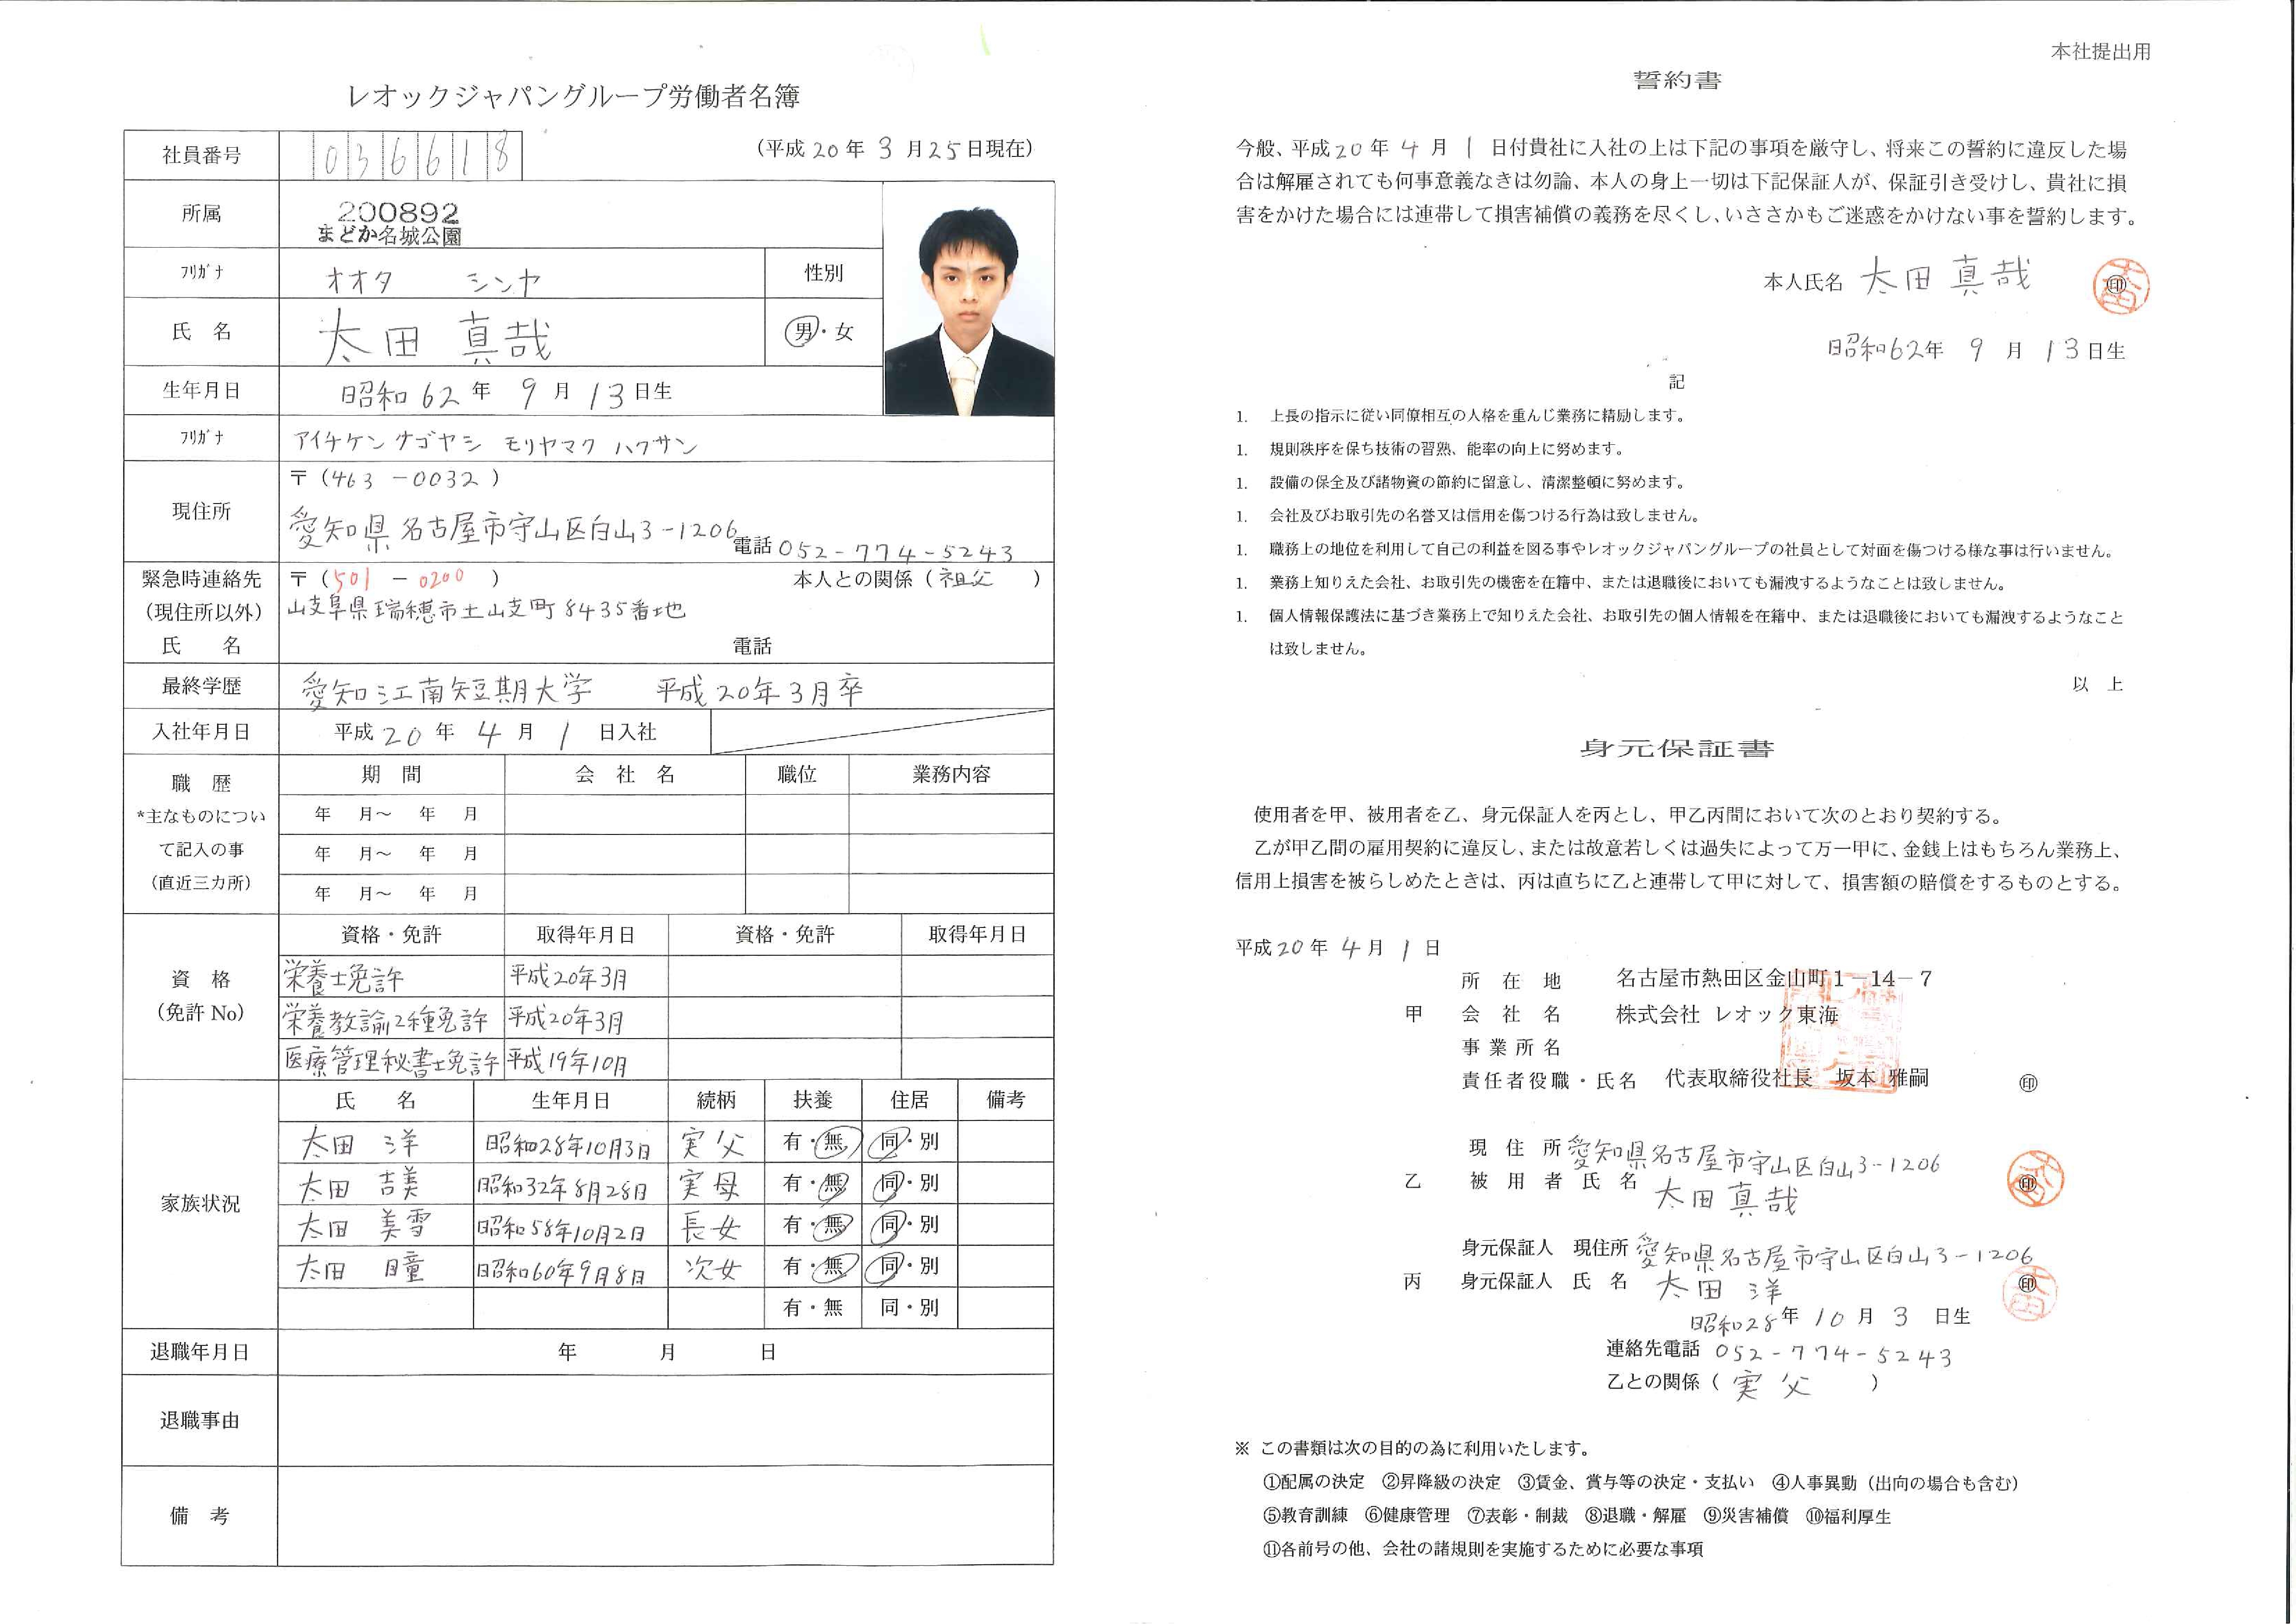 レオックジャパングループ労働者名簿
社員番号 036618 (平成20年3月25日現在)
所属 200892
まどか名城公園
フリガナ オオタ シンヤ 性別
氏 名 太田 真哉 男・女
生年月日 昭和62年 9月 13日生
フリガナ アイチケンナゴヤシ モリヤマク ハクサン
現住所 〒(463-0032)
愛知県名古屋市守山区白山3-1206 電話 052-774-5243
緊急時連絡先 〒(501-0200) 本人との関係(祖父 )
(現住所以外) 岐阜県瑞穂市土岐町8435番地
氏 名 電話
最終学歴 愛知江南短期大学 平成20年3月卒
入社年月日 平成20年 4月 1日入社
職 歴 期 間 会 社 名 職位 業務内容
*主なものについ 年 月~ 年 月
て記入の事 年 月~ 年 月
(直近三カ所) 年 月~ 年 月
資格・免許 取得年月日 資格・免許 取得年月日
資 格 栄養士免許 平成20年3月
(免許No) 栄養教諭2種免許 平成20年3月
医療管理秘書士免許 平成19年10月
家族状況 氏 名 生年月日 続柄 扶養 住居 備考
太田 洋 昭和28年10月3日 実父 有・無 同・別
太田 吉美 昭和32年8月28日 実母 有・無 同・別
太田 美雪 昭和58年10月2日 長女 有・無 同・別
太田 瞳 昭和60年9月8日 次女 有・無 同・別
有・無 同・別
退職年月日 年 月 日
退職事由
備 考
本社提出用
誓約書
今般、平成20年 4月 1日付貴社に入社の上は下記の事項を厳守し、将来この誓約に違反した場
合は解雇されても何事意義なきは勿論、本人の身上一切は下記保証人が、保証引き受けし、貴社に損
害をかけた場合には連帯して損害補償の義務を尽くし、いささかもご迷惑をかけない事を誓約します。
本人氏名 太田真哉 ㊞
昭和62年 9月 13日生
記
1. 上長の指示に従い同僚相互の人格を重んじ業務に精励します。
1. 規則秩序を保ち技術の習熟、能率の向上に努めます。
1. 設備の保全及び諸物資の節約に留意し、清潔整頓に努めます。
1. 会社及びお取引先の名誉又は信用を傷つける行為は致しません。
1. 職務上の地位を利用して自己の利益を図る事やレオックジャパングループの社員として対面を傷つける様な事は行いません。
1. 業務上知りえた会社、お取引先の機密を在籍中、または退職後においても漏洩するようなことは致しません。
1. 個人情報保護法に基づき業務上で知りえた会社、お取引先の個人情報を在籍中、または退職後においても漏洩するようなこと
は致しません。
以 上
身元保証書
使用者を甲、被用者を乙、身元保証人を丙とし、甲乙丙間において次のとおり契約する。
乙が甲乙間の雇用契約に違反し、または故意若しくは過失によって万一甲に、金銭上はもちろん業務上、
信用上損害を被らしめたときは、丙は直ちに乙と連帯して甲に対して、損害額の賠償をするものとする。
平成20年 4月 1日
所 在 地 名古屋市熱田区金山町1-14-7
甲 会 社 名 株式会社 レオック東海
事業所名
責任者役職・氏名 代表取締役社長 坂本 雅嗣 ㊞
現 住 所 愛知県名古屋市守山区白山3-1206
乙 被 用 者 氏 名 太田真哉 ㊞
身元保証人 現住所 愛知県名古屋市守山区白山3-1206
丙 身元保証人 氏 名 太田 洋 ㊞
昭和28年 10月 3日生
連絡先電話 052-774-5243
乙との関係(実父 )
※ この書類は次の目的の為に利用いたします。
①配属の決定 ②昇降級の決定 ③賃金、賞与等の決定・支払い ④人事異動(出向の場合も含む)
⑤教育訓練 ⑥健康管理 ⑦表彰・制裁 ⑧退職・解雇 ⑨災害補償 ⑩福利厚生
⑪各前号の他、会社の諸規則を実施するために必要な事項